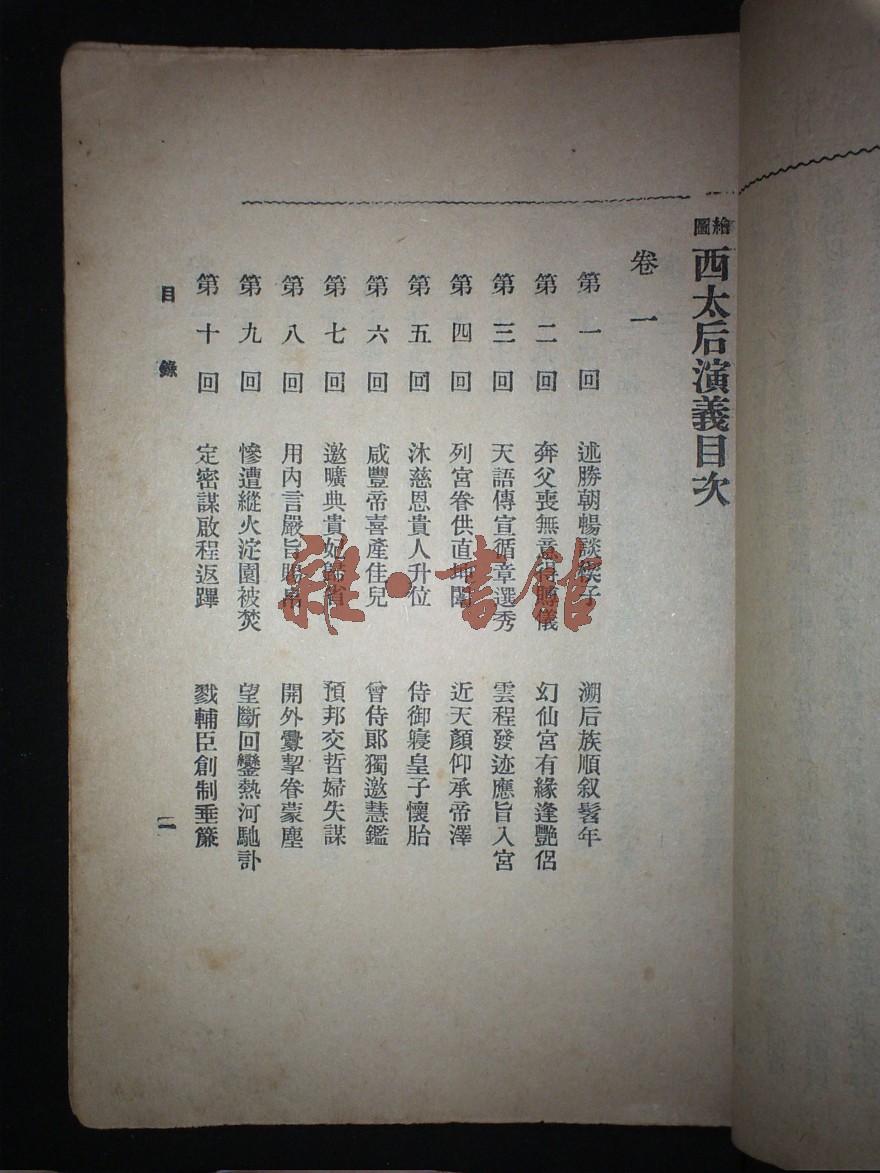 繪圖西太后演義目次
卷一
第一回 述勝朝暢談猴子 溯后族順叙髫年
第二回 奔父喪無意得賻儀 幻仙宮有緣逢艷侶
第三回 天語傳宣循章選秀 雲程發迹應旨入宮
第四回 列宮眷供直坤闈 近天顏仰承帝澤
第五回 沐慈恩貴人升位 侍御寢皇子懷胎
第六回 咸豐帝喜產佳兒 曾侍郎獨邀慧鑑
第七回 邀曠典貴妃歸省 預邦交哲婦失謀
第八回 用內言嚴旨賜帛 開外釁挈眷蒙塵
第九回 慘遭縱火淀園被焚 望斷回鑾熱河馳訃
第十回 定密謀啟程返蹕 戮輔臣創制垂簾
目錄
一
雜·書館